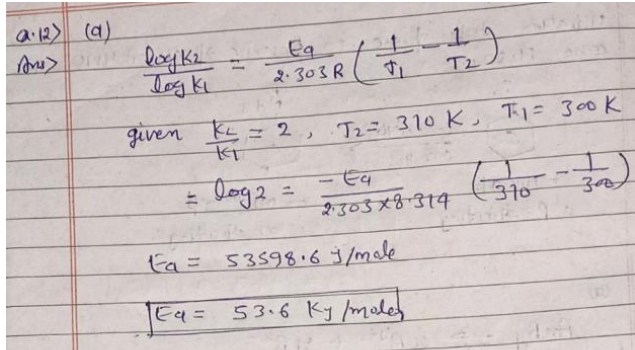 Q.12> (a)
Ans> log K2 / log K1 = Ea / 2.303 R (1/T1 - 1/T2)
given K2/K1 = 2, T2 = 310 K, T1 = 300 K
= log 2 = -Ea / 2.303 x 8.314 (1/310 - 1/300)
Ea = 53598.6 J/mole
Ea = 53.6 KJ/mole